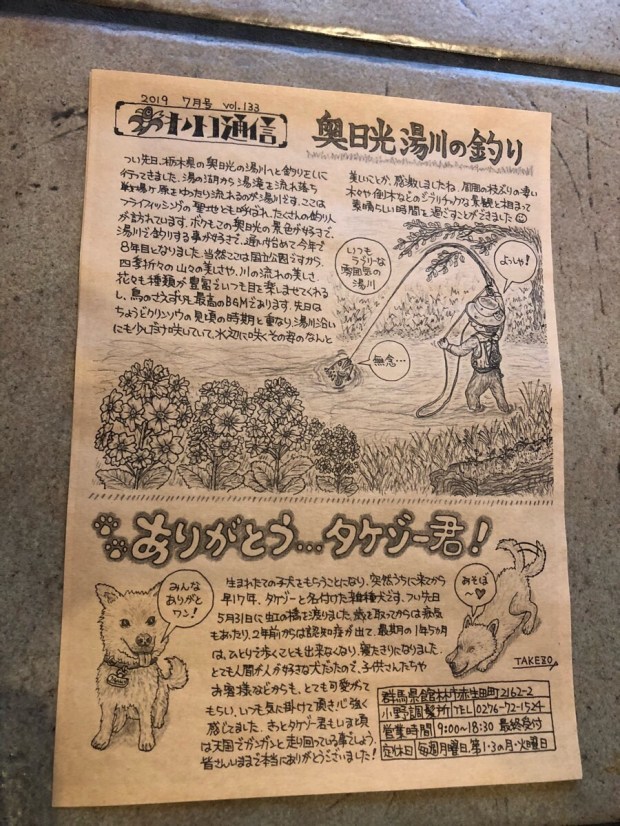 2019 7月号 vol.133
通信
奥日光湯川の釣り
つい先日、栃木県の奥日光の湯川へと釣りをしに
行ってきました。湯の湖から湯滝を流れ落ち
戦場ヶ原をゆったり流れるのが湯川です。ここは
フライフィッシングの聖地とも呼ばれ、たくさんの釣り人
が訪れています。ボクもこの奥日光の景色が好きで、
湯川で釣りする事が好きで、通い始めて今年で
8年目となりました。当然ここは国立公園ですから、
四季折々の山々の美しさや、川の流れの美しさ、
花々も種類が豊富でいつも目を楽しませてくれる
し、鳥のさえずりも最高のBGMであります。先日は
ちょうどクリンソウの見頃の時期と重なり、湯川沿い
にも少し咲いていて、水辺に咲くその姿のなんと
美しいことか、感激しましたね。周囲の枝ぶりの凄い
木々や倒木などのジブリチックな景観と相まって
素晴らしい時間を過ごすことができました
いつも
ラブリーな
雰囲気の
湯川
よっしゃ!
無念…
ありがとう…タケゾー君!
みんな
ありがと
ワン!
あそぼ
〜♥
TAKEZO
生まれたての子犬をもらうことになり、突然うちに来てから
早17年、タケゾーと名付けた雑種犬です。つい先日
5月31日に虹の橋を渡りました。歳を取ってからは病気
もあったり、2年前からは認知症が出て、最期の1年5か月
は、ひとりで歩くことも出来なくなり、寝たきりになりました。
とても人間が大好きな犬だったので、子供さんたちや
お客様などからも、とても可愛がって
もらい、いつも気に掛けて頂き心強く
感じてました。きっとタケゾー君もいま頃
は天国でガンガンと走り回っている事でしょう。
皆さんいままで本当にありがとうございました!
群馬県館林市赤生田町2162-2
小野調髪所 TEL 0276-72-1524
営業時間 9:00〜18:30 最終受付
定休日 毎週月曜日、第1・3の月・火曜日